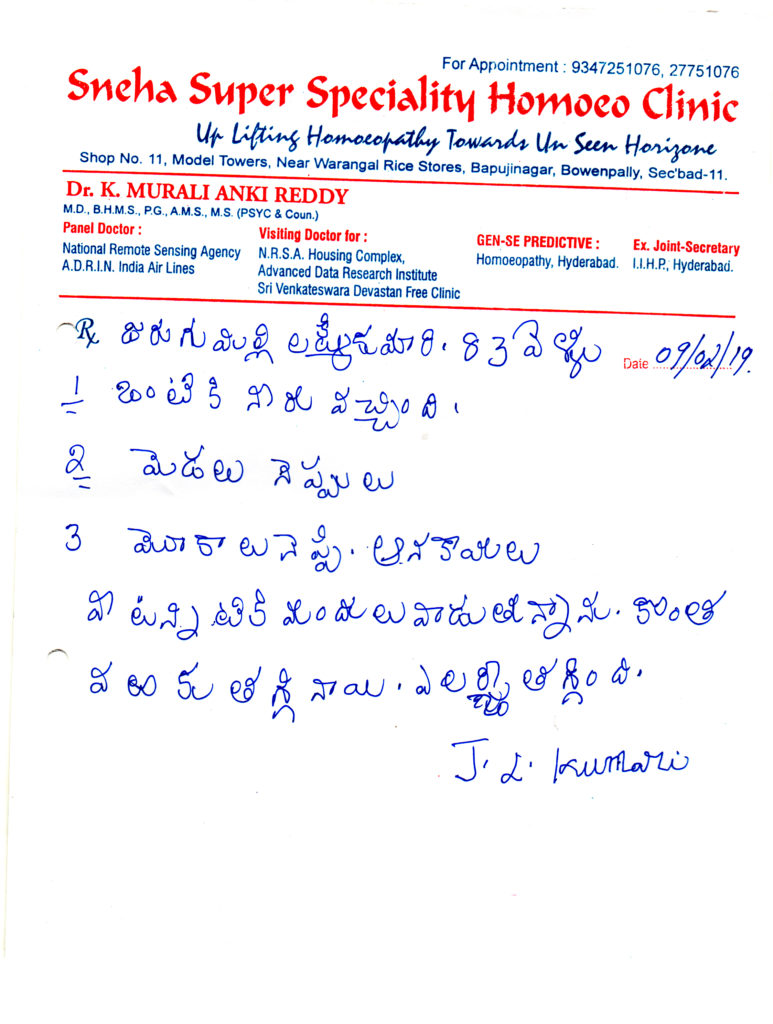 For Appointment : 9347251076, 27751076
Sneha Super Speciality Homoeo Clinic
Up Lifting Homoeopathy Towards Un Seen Horizone
Shop No. 11, Model Towers, Near Warangal Rice Stores, Bapujinagar, Bowenpally, Sec'bad-11.
Dr. K. MURALI ANKI REDDY
M.D., B.H.M.S., P.G., A.M.S., M.S. (PSYC & Coun.)
Panel Doctor :
National Remote Sensing Agency
A.D.R.I.N. India Air Lines
Visiting Doctor for :
N.R.S.A. Housing Complex,
Advanced Data Research Institute
Sri Venkateswara Devastan Free Clinic
GEN-SE PREDICTIVE :
Homoeopathy, Hyderabad.
Ex. Joint-Secretary
I.I.H.P., Hyderabad.
Rx జురుగుమిల్లి లక్ష్మీకుమారి. 83 వేళ్ళు Date 09/02/19.
1 ఒంటికి నీరు వచ్చింది.
2 మెడలు నెప్పులు
3 మోకాలు నెప్పి. ఆనకాయలు
వీటన్నిటికి మందులు వాడుతున్నాను. కొంత
వరకు తగ్గినాయి. ఎలర్జీ తగ్గింది.
J. L. Kumari